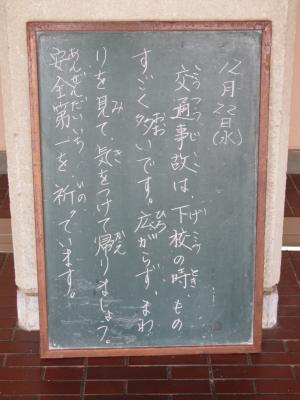 12月22日(水)
交通事故は、下校の時、もの
すごく多いです。広がらず、まわ
りを見て、気をつけて帰りましょう。
安全第一を、祈っています。